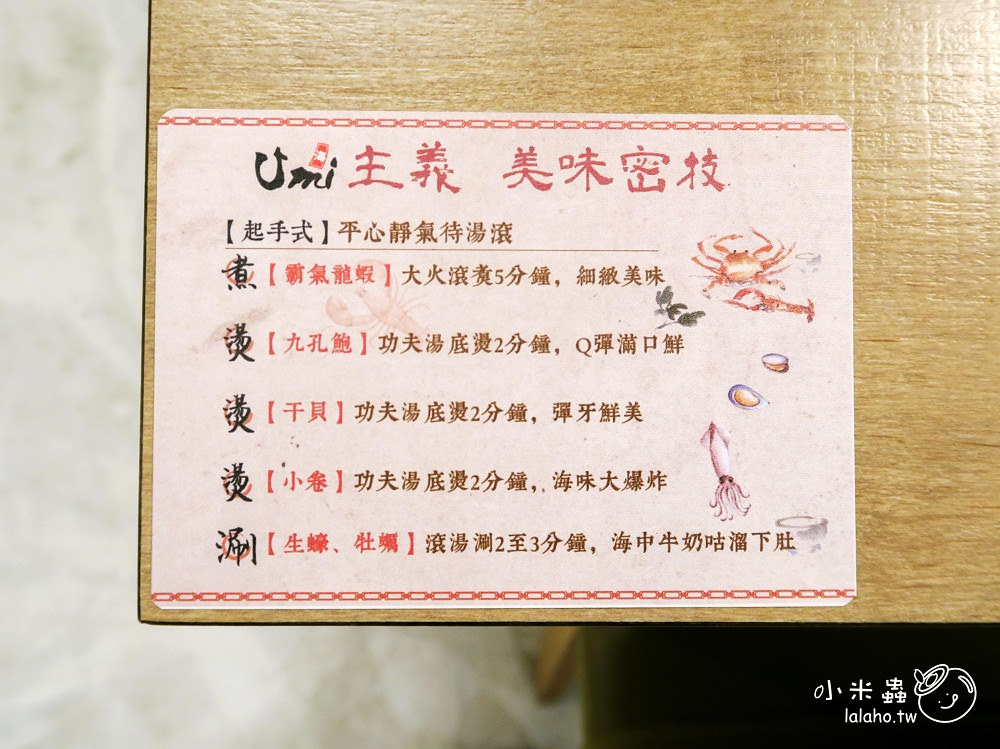 Umi主義 美味密技
【起手式】平心靜氣待湯滾
煮【霸氣龍蝦】大火滾煮5分鐘，細緻美味
燙【九孔鮑】功夫湯底燙2分鐘，Q彈滿口鮮
燙【干貝】功夫湯底燙2分鐘，彈牙鮮美
燙【小卷】功夫湯底燙2分鐘，海味大爆炸
涮【生蠔、牡蠣】滾湯涮2至3分鐘，海中牛奶咕溜下肚
小米蟲
lalaho.tw